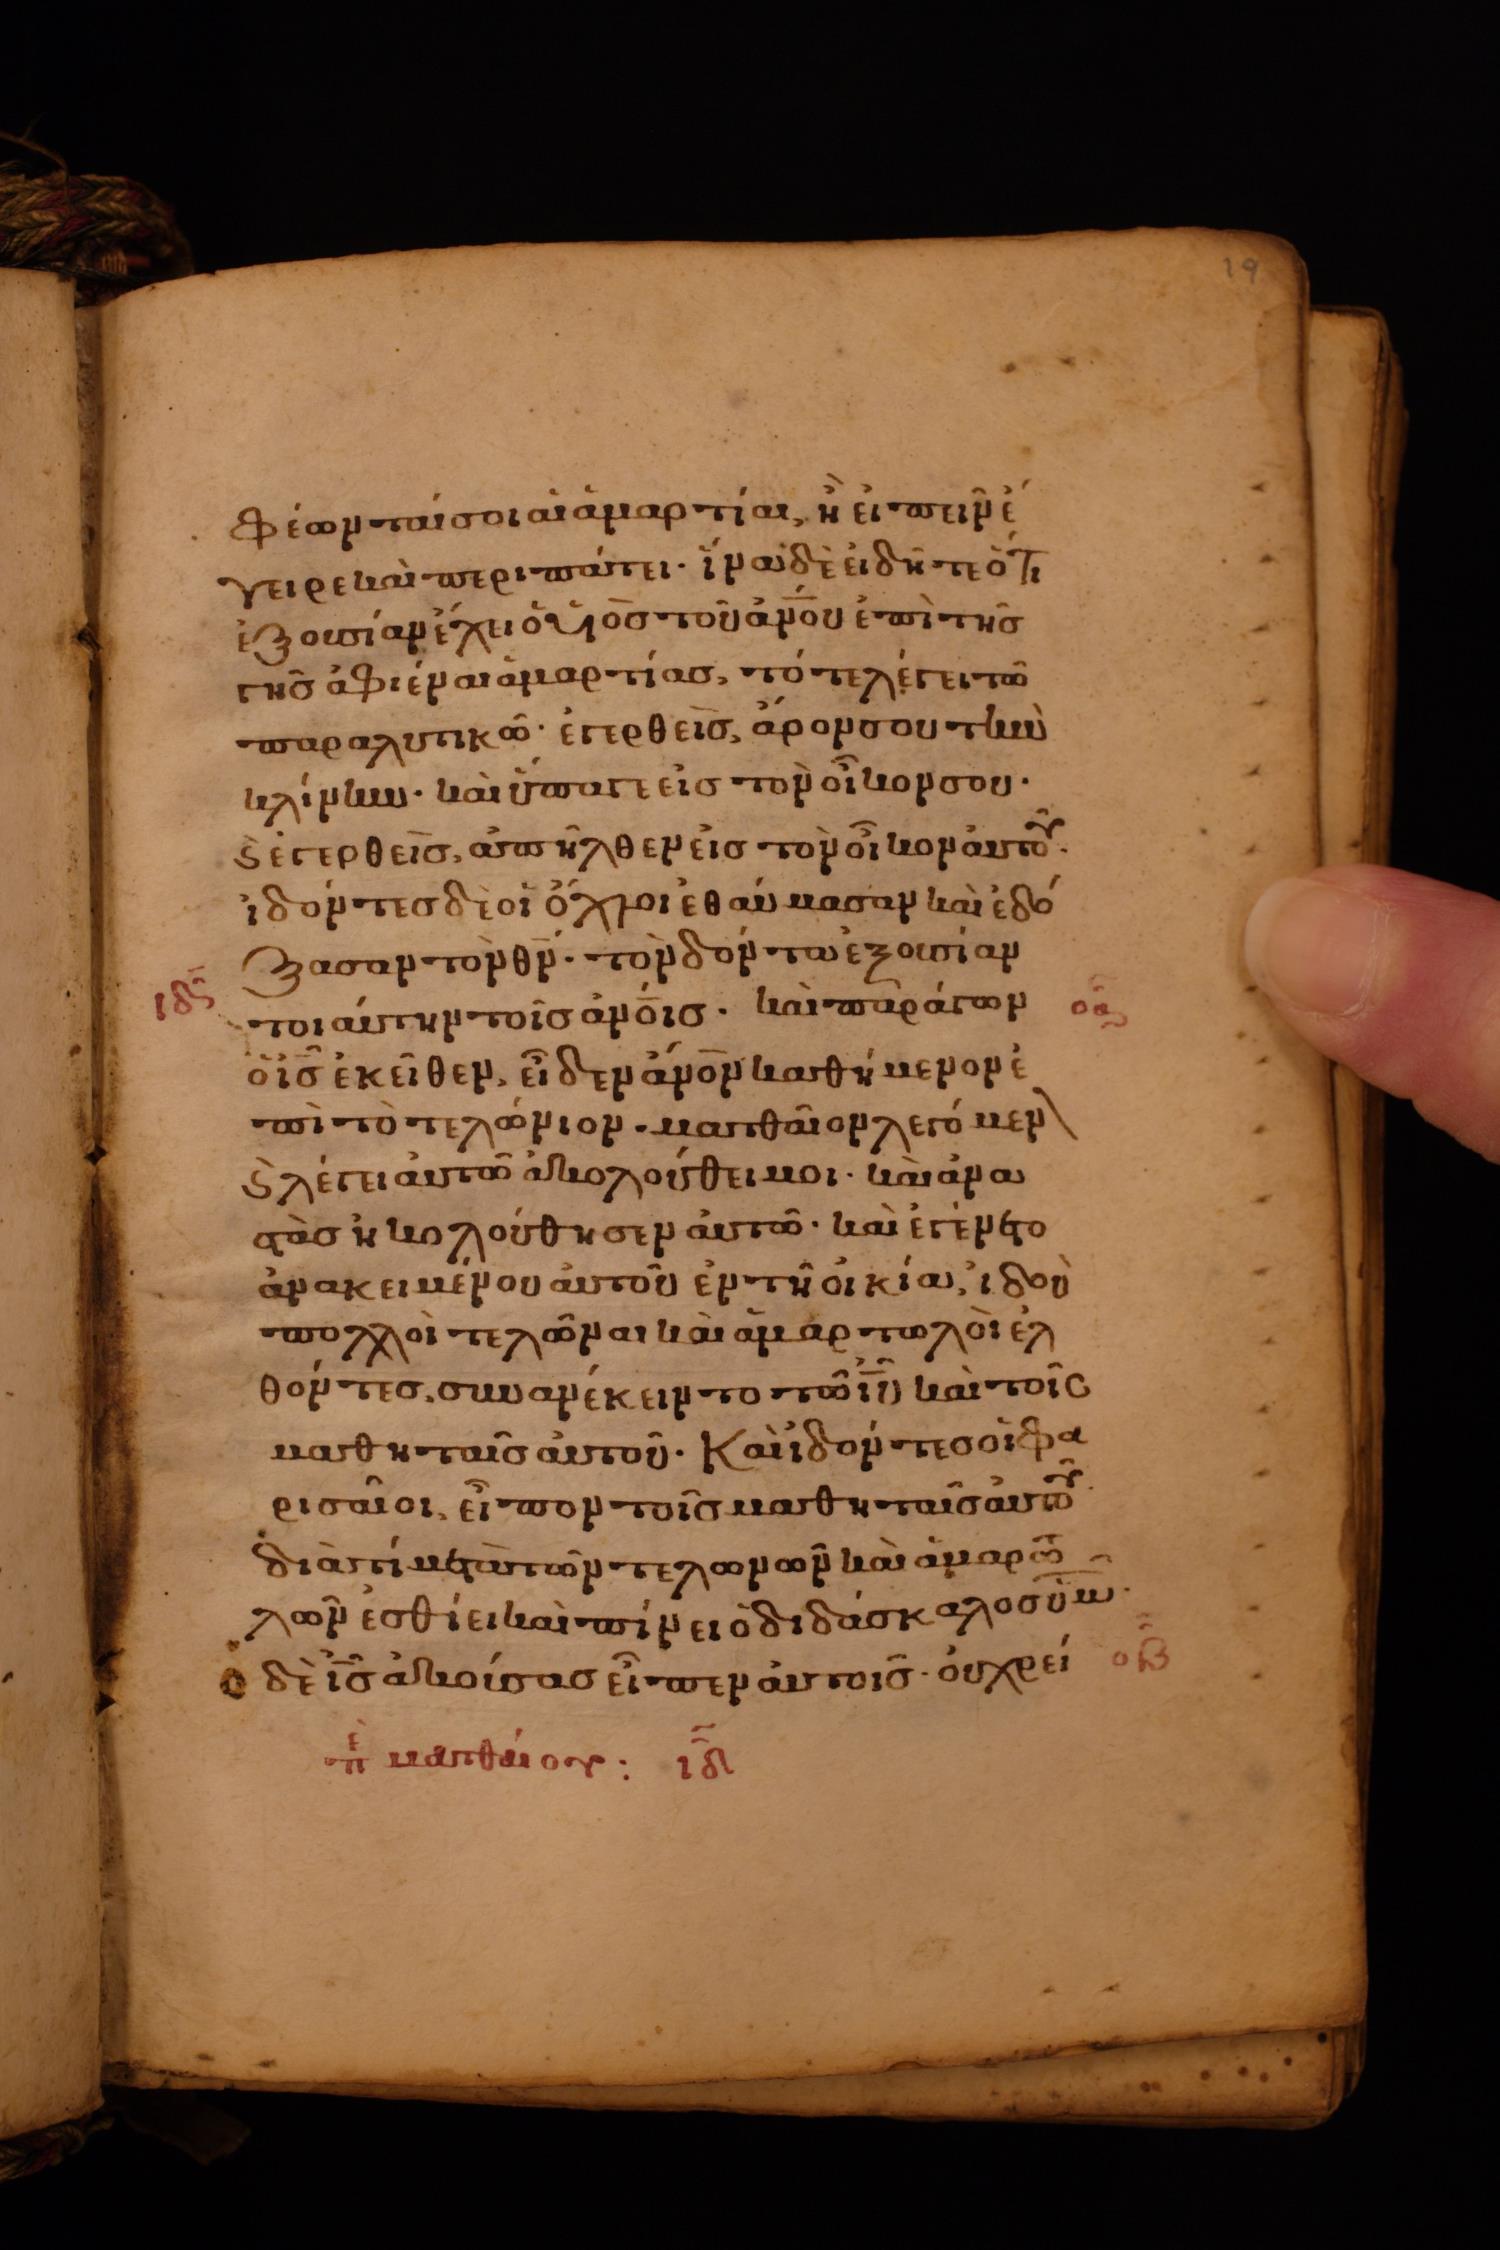 19
φέωνταί σοι αἱ ἁμαρτίαι, ἢ εἰπεῖν ἔ
γειρε καὶ περιπάτει· ἵνα δὲ εἰδῆτε ὅτι
ἐξουσίαν ἔχει ὁ υἱὸς τοῦ ἀνου ἐπὶ τῆς
γῆς ἀφιέναι ἁμαρτίας, τότε λέγει τῶ
παραλυτικῶ· ἐγερθεὶς, ἆρόν σου τὴν
κλίνην· καὶ ὕπαγε εἰς τὸν οἶκόν σου·
ϗ ἐγερθεὶς, ἀπῆλθεν εἰς τὸν οἶκον αὐτοῦ·
ἰδόντες δὲ οἱ ὄχλοι ἐθαύμασαν καὶ ἐδό
ξασαν τὸν θν· τὸν δόντα ἐξουσίαν
τοιαύτην τοῖς ἀνοις· καὶ παράγων
ὁ ις ἐκεῖθεν, εἶδεν ἀνον καθήμενον ἐ
πὶ τὸ τελώνιον· ματθαῖον λεγόμεν
ϗ λέγει αὐτῶ ἀκολούθει μοι· καὶ ἀνα
στὰς ἠκολούθησεν αὐτῶ· καὶ ἐγένετο
ἀνακειμένου αὐτοῦ ἐν τῆ οἰκία, ἰδοὺ
πολλοὶ τελῶναι καὶ ἁμαρτωλοὶ ἐλ
θόντες, συνανέκειντο τῶ ιυ καὶ τοῖς
μαθηταῖς αὐτοῦ· Καὶ ἰδόντες οἱ φα
ρισαῖοι, εἶπον τοῖς μαθηταῖς αὐτοῦ
διὰ τί μετὰ τῶν τελωνῶν καὶ ἁμαρτω
λῶν ἐσθίει καὶ πίνει ὁ διδάσκαλος ὑμῶν·
ὁ δὲ ις ἀκούσας εἶπεν αὐτοῖς· οὐ χρεί
οα
οβ
ιδ
πε ματθαίου: ιδ